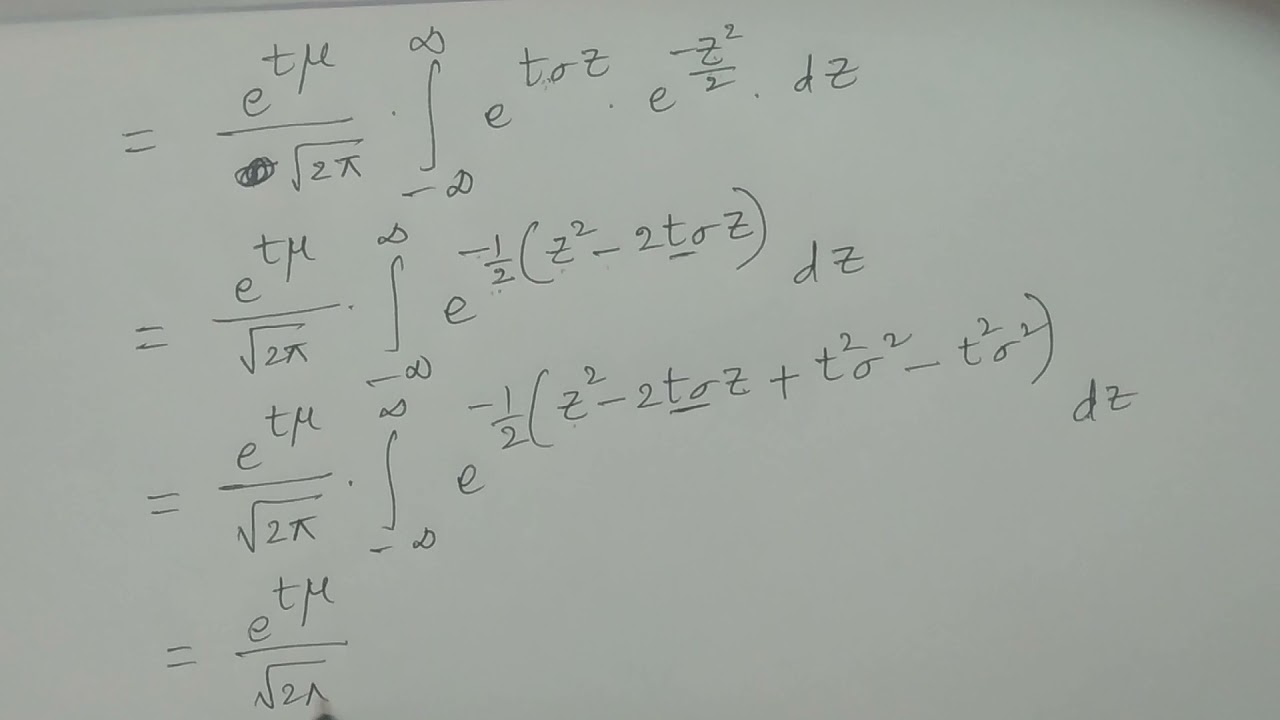 = e^{tμ} / √2π · ∫_{-∞}^{∞} e^{tσz} · e^{-z²/2} · dz
= e^{tμ} / √2π · ∫_{-∞}^{∞} e^{-1/2(z² - 2tσz)} dz
= e^{tμ} / √2π · ∫_{-∞}^{∞} e^{-1/2(z² - 2tσz + t²σ² - t²σ²)} dz
= e^{tμ} / √2π